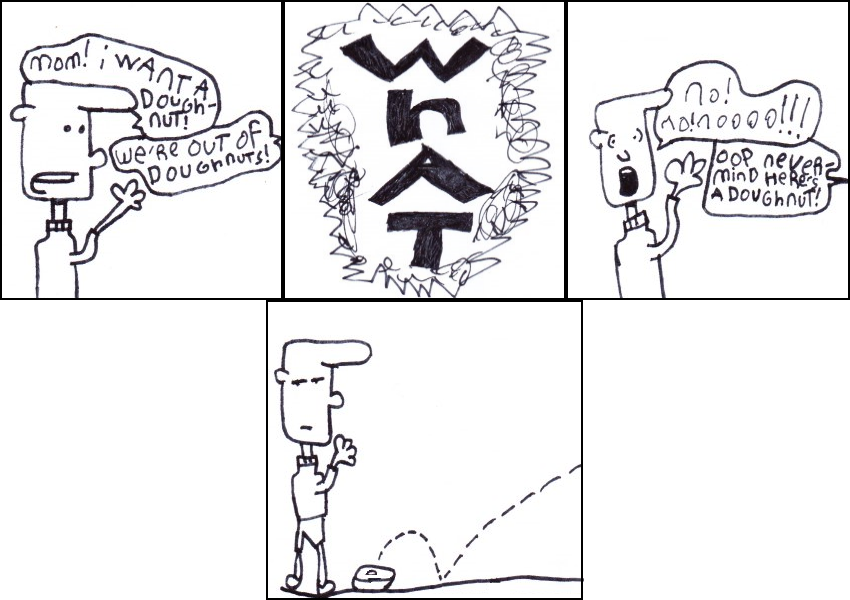 mom! i WANT A
DOUGH-
NUT!
WE'RE OUT OF
DOUGHNUTS!
W
h
A
T
no!
no!noooo!!!
OOP NEVER-
MIND HERE'S
A DOUGHNUT!